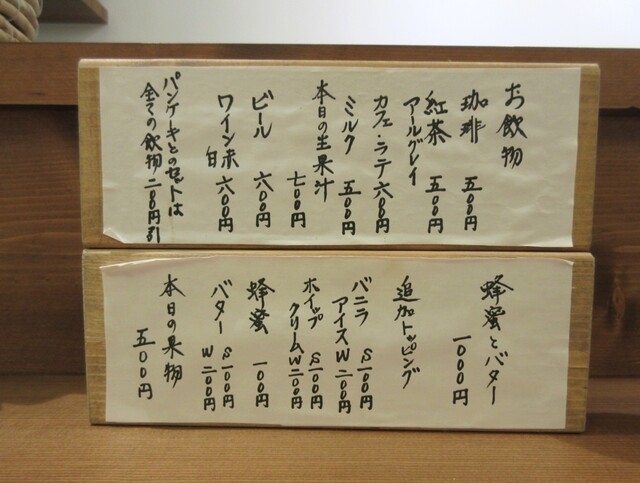 お飲物
珈琲 五〇〇円
紅茶 五〇〇円
アールグレイ
カフェ・ラテ 六〇〇円
ミルク 五〇〇円
本日の生果汁
七〇〇円
ビール 六〇〇円
ワイン 赤 白 六〇〇円
パンケーキとのセットは
全ての飲物二〇〇円引
蜂蜜とバター
一〇〇〇円
追加トッピング
バニラ S一〇〇円
アイス W二〇〇円
ホイップ S一〇〇円
クリーム W二〇〇円
蜂蜜 一〇〇円
バター S一〇〇円
W二〇〇円
本日の果物
五〇〇円